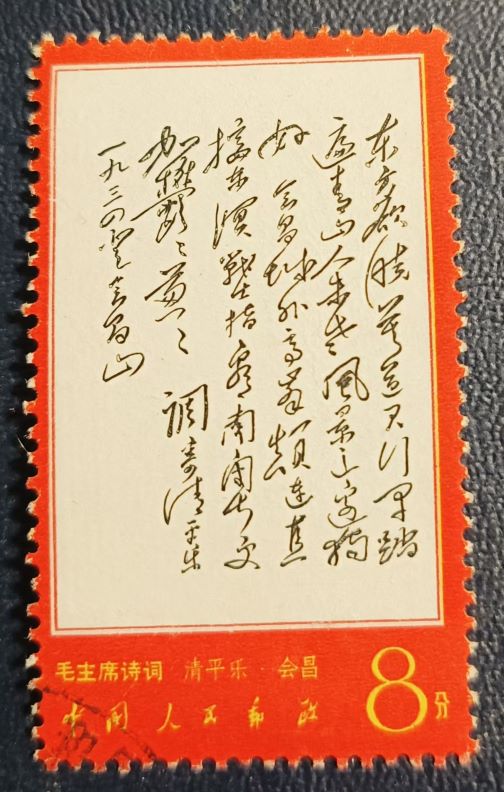 东方欲晓莫道君行早踏
遍青山人未老風景这邊独
好 会昌城外高峯颠連直
接东溟戰士指看南粤更
加鬱々葱々 調寄清平乐
一九三四登会昌山
毛主席诗词 清平乐·会昌
中国人民邮政
8分